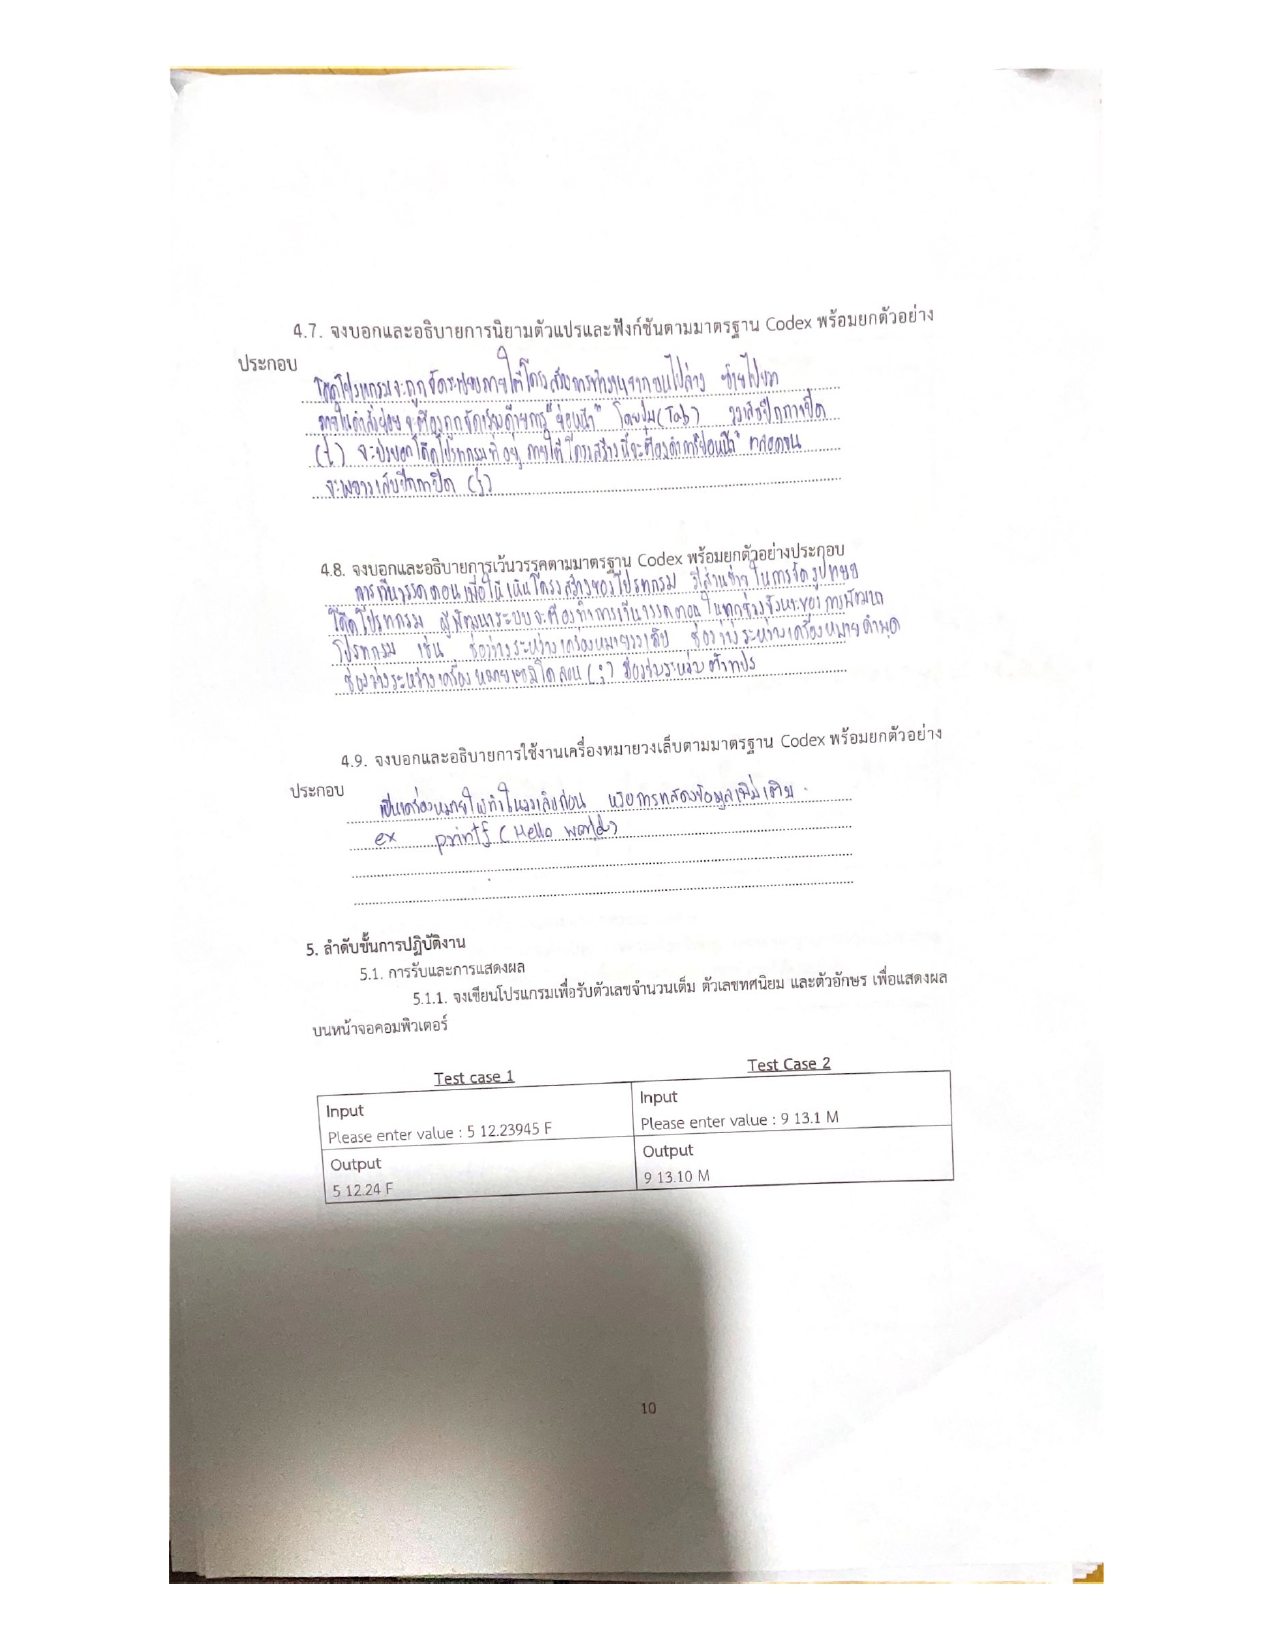 4.7. จงบอกและอธิบายการนิยามตัวแปรและฟังก์ชันตามมาตรฐาน Codex พร้อมยกตัวอย่าง
ประกอบ
โค้ดโปรแกรมจะถูกจัดระเบียบภายใต้โครงสร้างการทำงานจากบนไปล่าง ซ้ายไปขวา
ภายในคำสั่งย่อยจะต้องถูกจัดเรียงด้วยการ "ย่อหน้า" โดยปุ่ม (Tab) วงเล็บปีกกาเปิด
({) จะบ่งบอกโค้ดโปรแกรมที่อยู่ ภายใต้โครงสร้างนี้จะต้องทำการ "ย่อหน้า" ตลอดจน
จะพบวงเล็บปีกกาปิด (})
4.8. จงบอกและอธิบายการเว้นวรรคตามมาตรฐาน Codex พร้อมยกตัวอย่างประกอบ
การเว้นวรรคตอนเพื่อให้เห็นโครงสร้างของโปรแกรม มีส่วนช่วยในการจัดรูปแบบ
โค้ดโปรแกรม ผู้พัฒนาระบบจะต้องทำการเว้นวรรคตอนในทุกช่วงจังหวะของการพัฒนา
โปรแกรม เช่น ช่องว่างระหว่างเครื่องหมายวงเล็บ ช่องว่างระหว่างเครื่องหมายคำพูด
ช่องว่างระหว่างเครื่องหมายเซมิโคลอน (;) ช่องว่างระหว่างตัวแปร
4.9. จงบอกและอธิบายการใช้งานเครื่องหมายวงเล็บตามมาตรฐาน Codex พร้อมยกตัวอย่าง
ประกอบ
เป็นเครื่องหมายให้ทำในวงเล็บก่อน หรือการแสดงข้อมูลเพิ่มเติม
ex printf (Hello world)
5. ลำดับขั้นการปฏิบัติงาน
5.1. การรับและการแสดงผล
5.1.1. จงเขียนโปรแกรมเพื่อรับตัวเลขจำนวนเต็ม ตัวเลขทศนิยม และตัวอักษร เพื่อแสดงผล
บนหน้าจอคอมพิวเตอร์
Test case 1
Test Case 2
Input
Please enter value : 5 12.23945 F
Input
Please enter value : 9 13.1 M
Output
5 12.24 F
Output
9 13.10 M
10